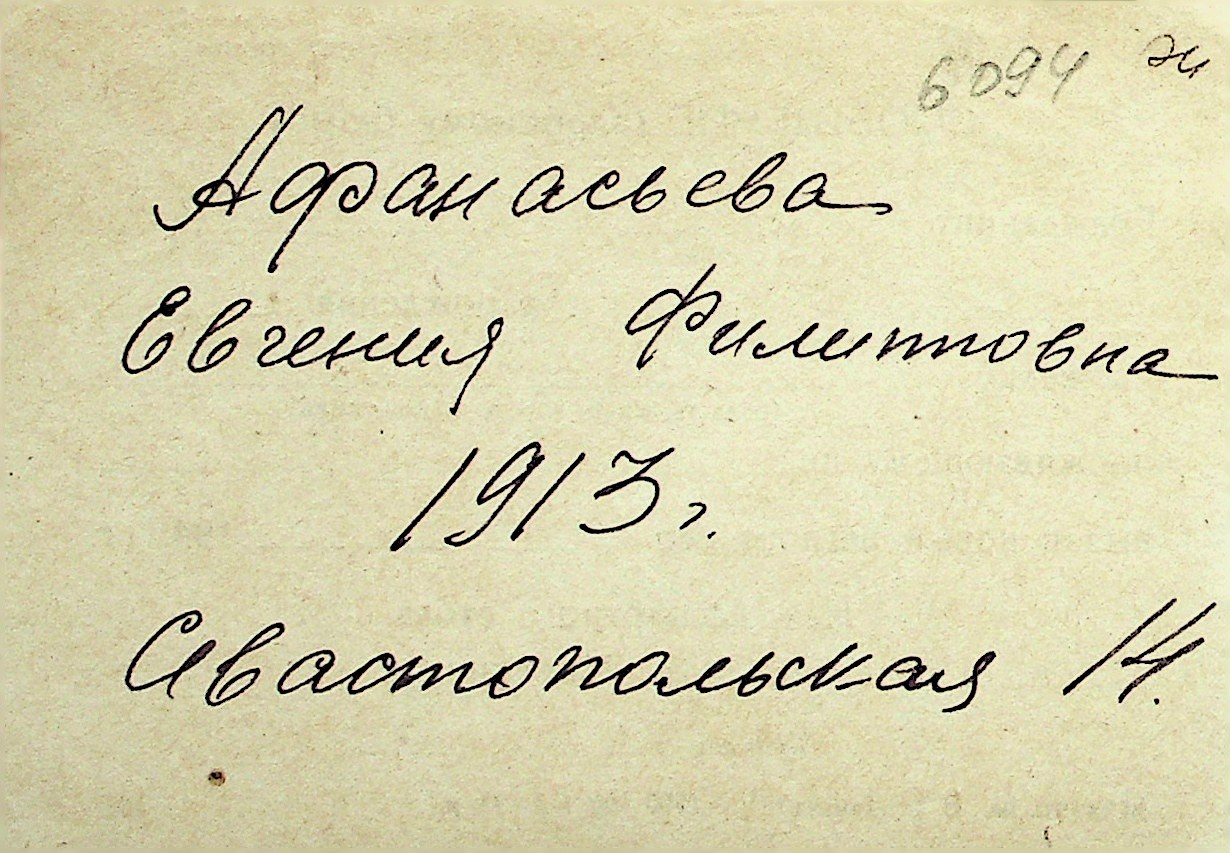 6094
Афанасьева
Евгения Филипповна
1913 г.
Севастопольская 14.